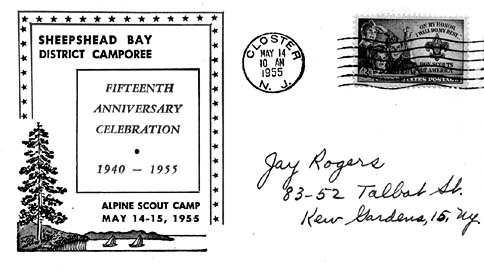 SHEEPSHEAD BAY
DISTRICT CAMPOREE
FIFTEENTH
ANNIVERSARY
CELEBRATION
•
1940 – 1955
ALPINE SCOUT CAMP
MAY 14-15, 1955
CLOSTER
MAY 14
10 AM
1955
N. J.
ON MY HONOR
I WILL DO MY BEST
BOY SCOUTS
OF AMERICA
STATES POSTAGE
Jay Rogers
83-52 Talbot St.
Kew Gardens, 15, Ny